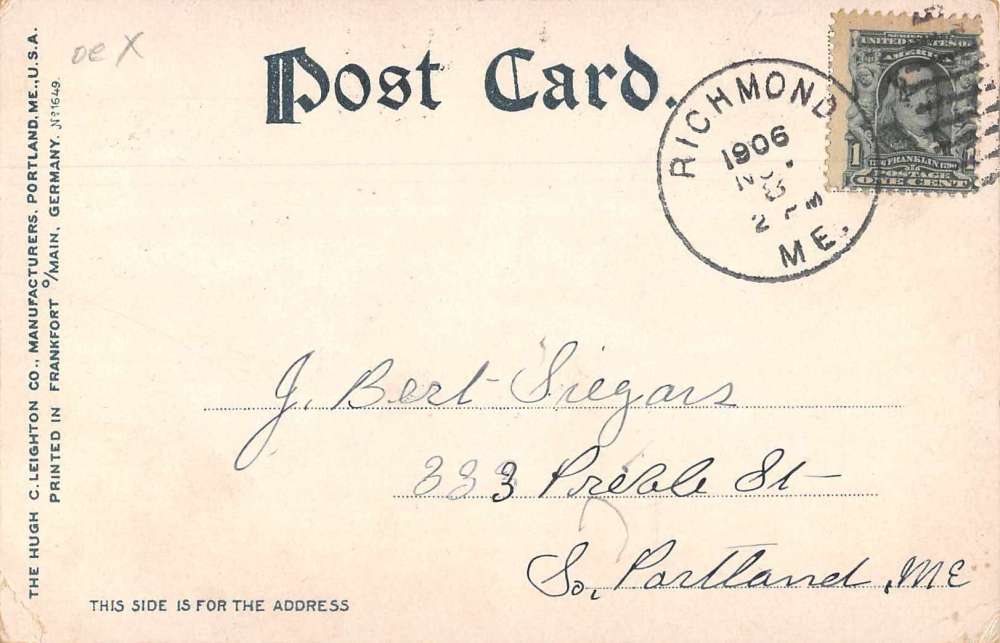 oe X
Post Card.
RICHMOND
1906
NOV
2
ME.
SERIES 1902
UNITED STATES OF
AMERICA
1
1
1706 FRANKLIN 1790
POSTAGE
ONE CENT
THE HUGH C. LEIGHTON CO., MANUFACTURERS, PORTLAND, ME., U.S.A.
PRINTED IN FRANKFORT O/MAIN, GERMANY. No 1649.
J. Bert Siegars
333 Preble St
So, Portland, ME
THIS SIDE IS FOR THE ADDRESS